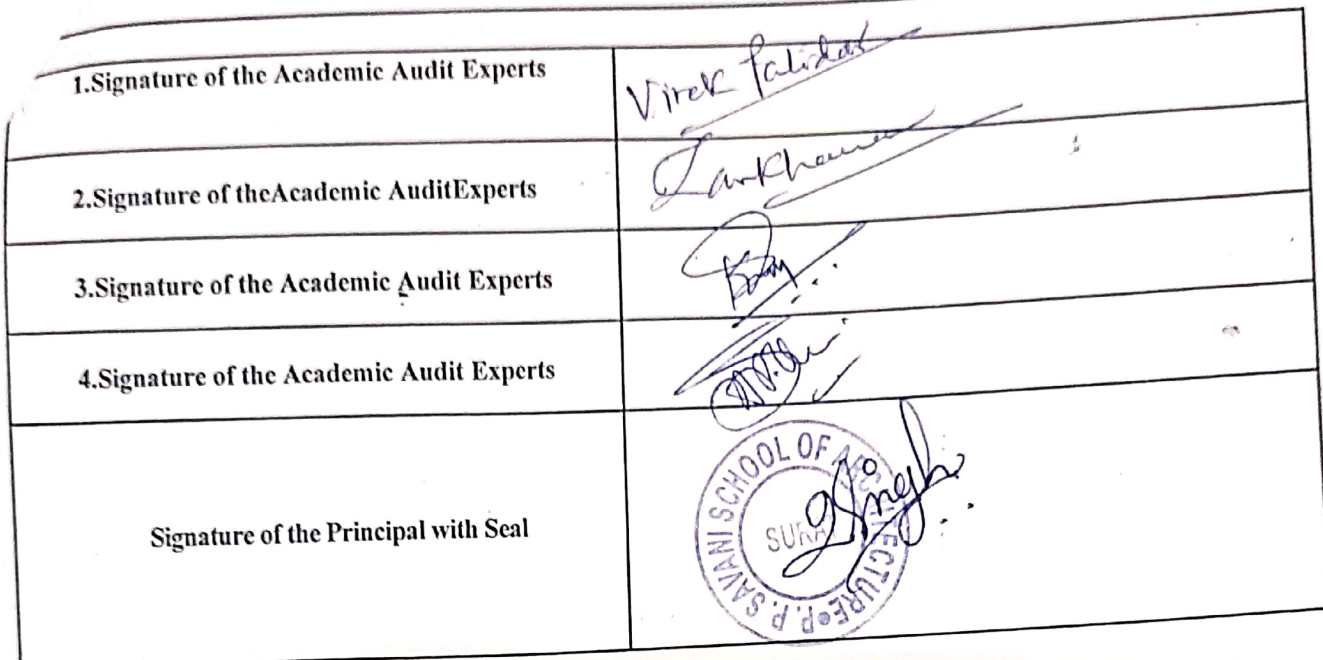 1.Signature of the Academic Audit Experts
2.Signature of theAcademic AuditExperts
3.Signature of the Academic Audit Experts
4.Signature of the Academic Audit Experts
Signature of the Principal with Seal
Singh
P.P. SAVANI SCHOOL OF ARCHITECTURE